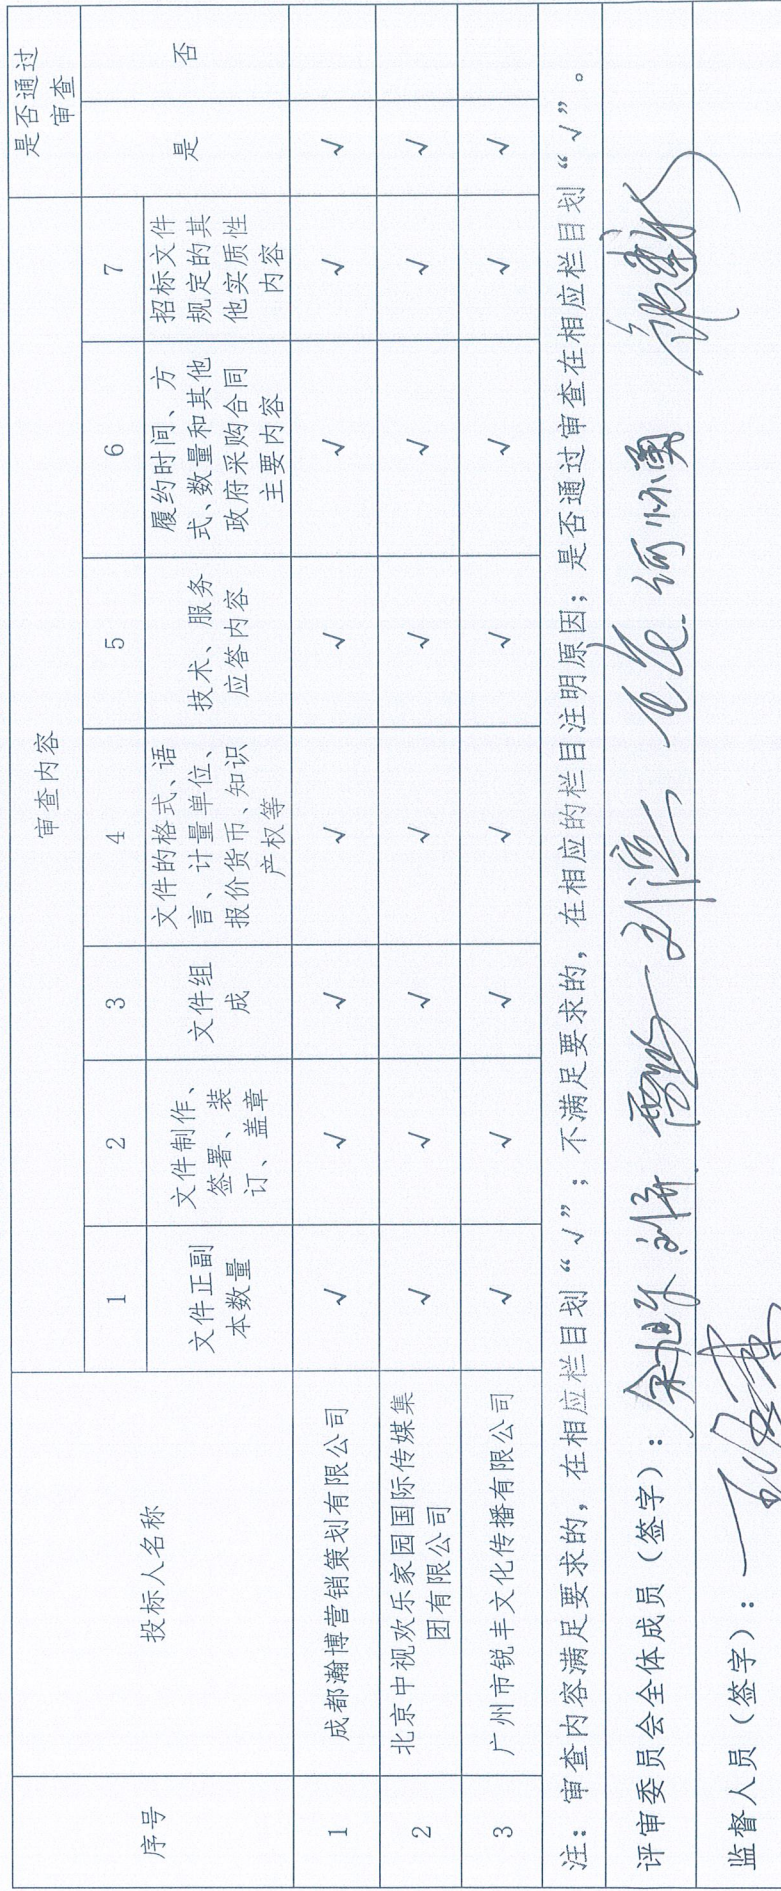 序号 投标人名称 审查内容 是否通过审查
1 2 3 4 5 6 7 是 否
文件正副本数量 文件制作、签署、装订、盖章 文件组成 文件的格式、语言、计量单位、报价货币、知识产权等 技术、服务应答内容 履约时间、方式、数量和其他政府采购合同主要内容 招标文件规定的其他实质性内容
1 成都瀚博营销策划有限公司 √ √ √ √ √ √ √ √
2 北京中视欢乐家园国际传媒集团有限公司 √ √ √ √ √ √ √ √
3 广州市锐丰文化传播有限公司 √ √ √ √ √ √ √ √
注：审查内容满足要求的，在相应栏目划“√”；不满足要求的，在相应的栏目注明原因；是否通过审查在相应栏目划“√”。
评审委员会全体成员（签字）：
监督人员（签字）：